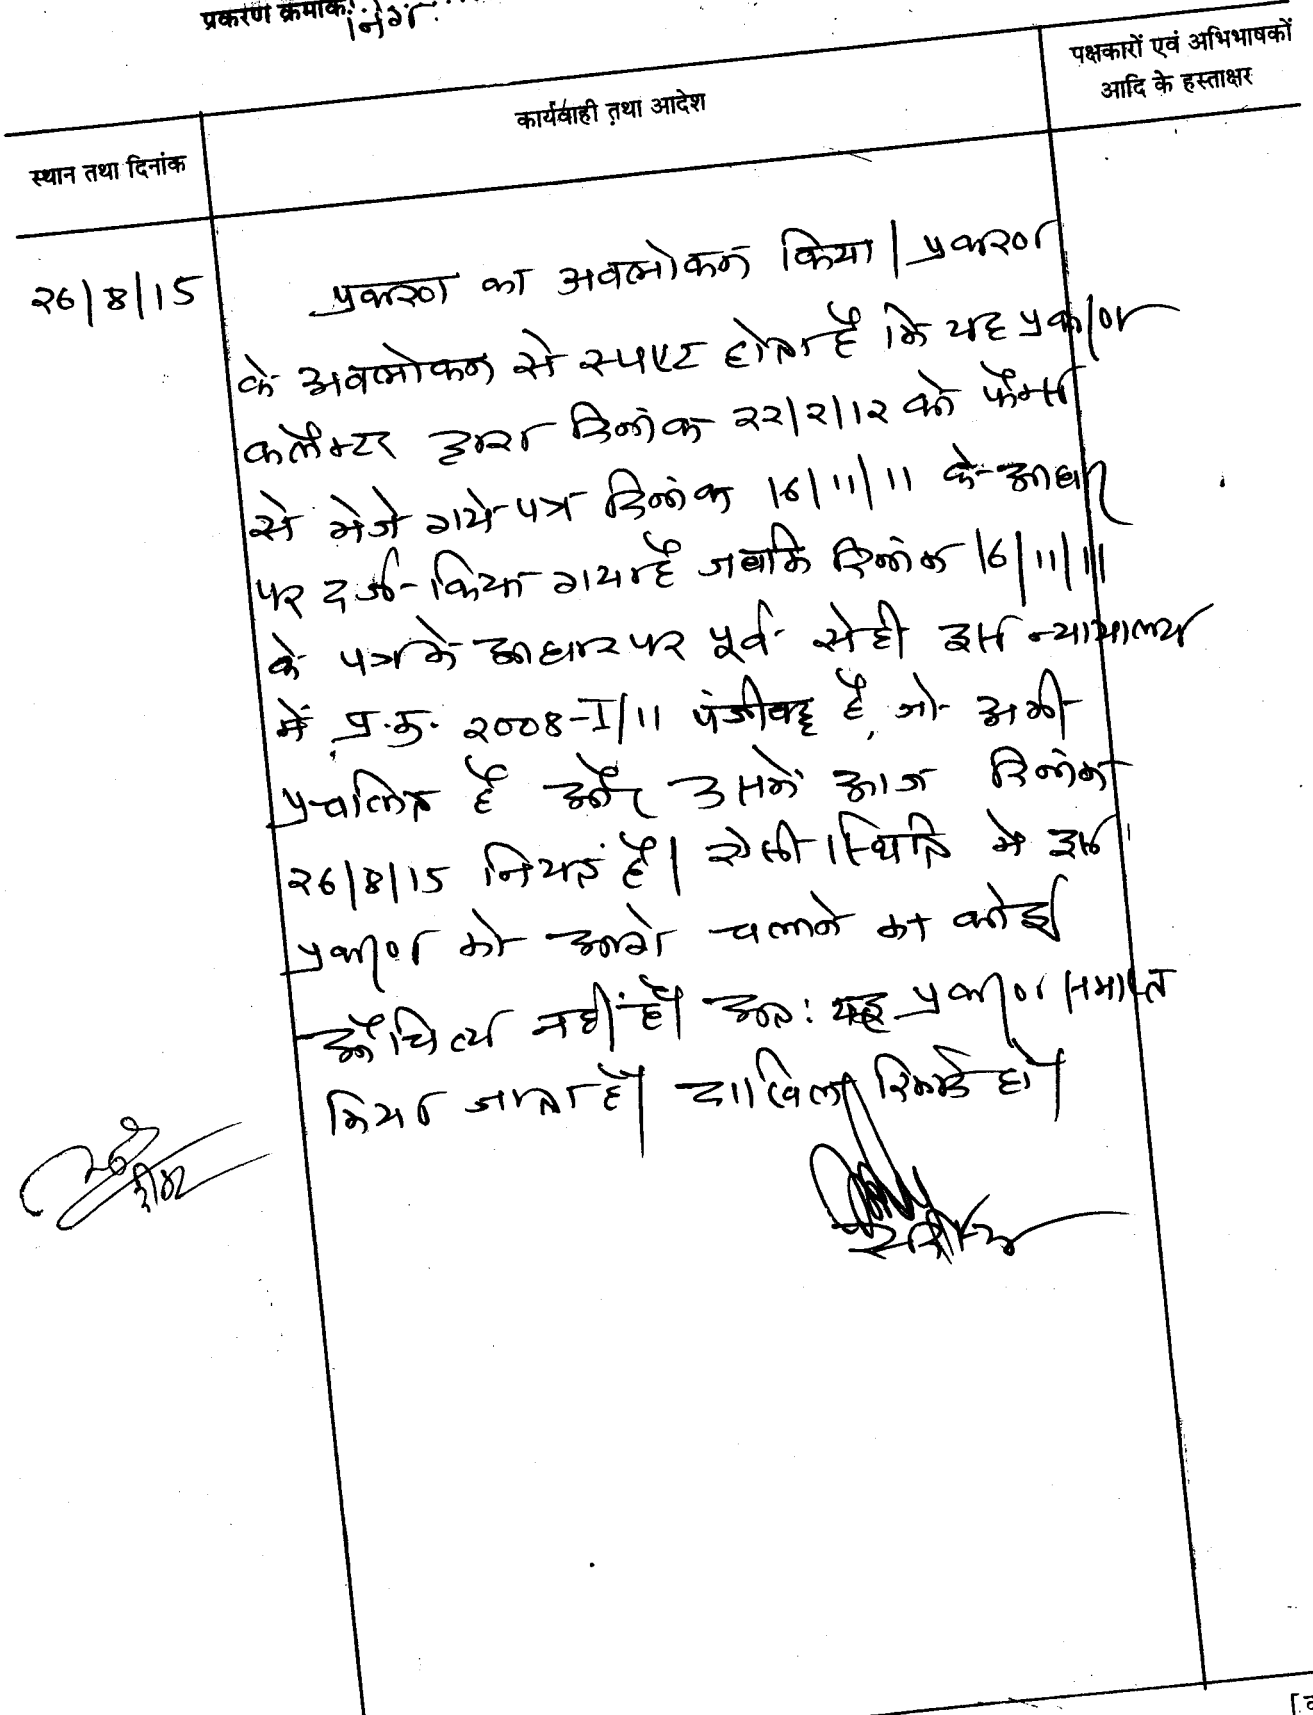 प्रकरण क्रमांक: निग.
स्थान तथा दिनांक
कार्यवाही तथा आदेश
पक्षकारों एवं अभिभाषकों
आदि के हस्ताक्षर
26/8/15
प्रकरण का अवलोकन किया। प्रकरण
के अवलोकन से स्पष्ट होता है कि यह प्रकरण
कलेक्टर द्वारा दिनांक 22/2/12 को फैक्स
से भेजे गये पत्र दिनांक 16/11/11 के आधार
पर दर्ज किया गया है जबकि दिनांक 16/11/11
के पत्र के आधार पर पूर्व से ही इस न्यायालय
में प्र.क्र. 2008-I/11 पंजीबद्ध है, जो अभी
प्रचलित है और उसमें आज दिनांक
26/8/15 नियत है। ऐसी स्थिति में इस
प्रकरण को आगे चलाने का कोई
औचित्य नहीं है। अतः यह प्रकरण समाप्त
किया जाता है। दाखिल रिकार्ड हो।